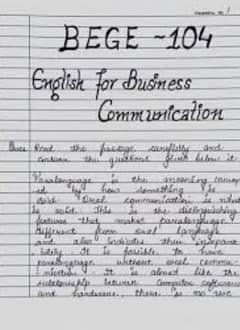 BEGE - 104
English For Business
Communication
Read the passage carefully and
answer the questions given below it.
Paralanguage is the meaning convey
ed by how something is
said. Oral communication is what
is said. This is the distinguishing
feature that makes paralanguage
different from oral language
and also indicates their insepara
bility. It is possible to have
paralanguage without oral commu-
nication. It is almost like the
relationship between Computer software
and hardware, there is no use